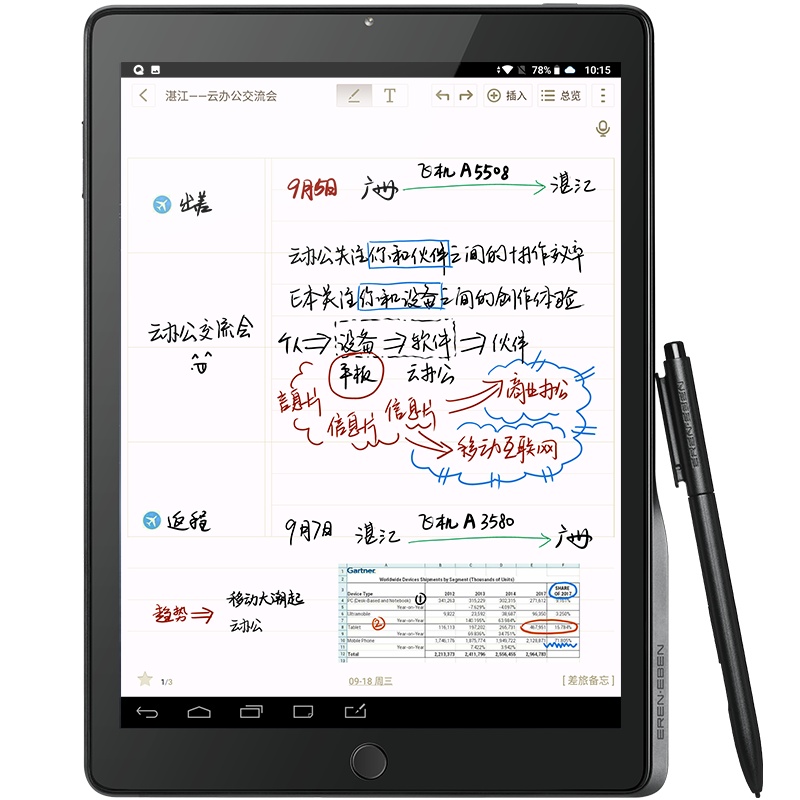 78% 10:15
湛江——云办公交流会 T 插入 总览
飞机 A5508
出差 9月5日 广州 湛江
云办公关注你和伙伴之间的协作效率
E本关注你和设备之间的创作体验
云办公交流会
个人 设备 软件 伙伴
平板 云办公
信息片 信息片 信息片 商业办公
移动互联网
飞机 A3580
返程 9月7日 湛江 广州
趋势 移动大潮起
云办公
Gartner
Worldwide Devices Shipments by Segment (Thousands of Units)
Device Type 2012 2013 2014 2017 SHARE OF 2017
PC (Desk-Based and Notebook) ① 341,263 315,229 302,315 271,612
Year-on-Year -7.629% -4.097%
Ultramobile 9,822 23,592 38,687 96,350 3.250%
Year-on-Year 140.195% 63.984%
Tablet ② 116,113 197,202 265,731 467,951 15.784%
Year-on-Year 69.836% 34.751%
Mobile Phone 1,746,176 1,875,774 1,949,722 2,128,871 71.805%
Year-on-Year 7.422% 3.942%
Total 2,213,373 2,411,796 2,556,455 2,964,783
1/3 09-18.周三 [差旅备忘]
EREN·EBEN
EREN·EBEN